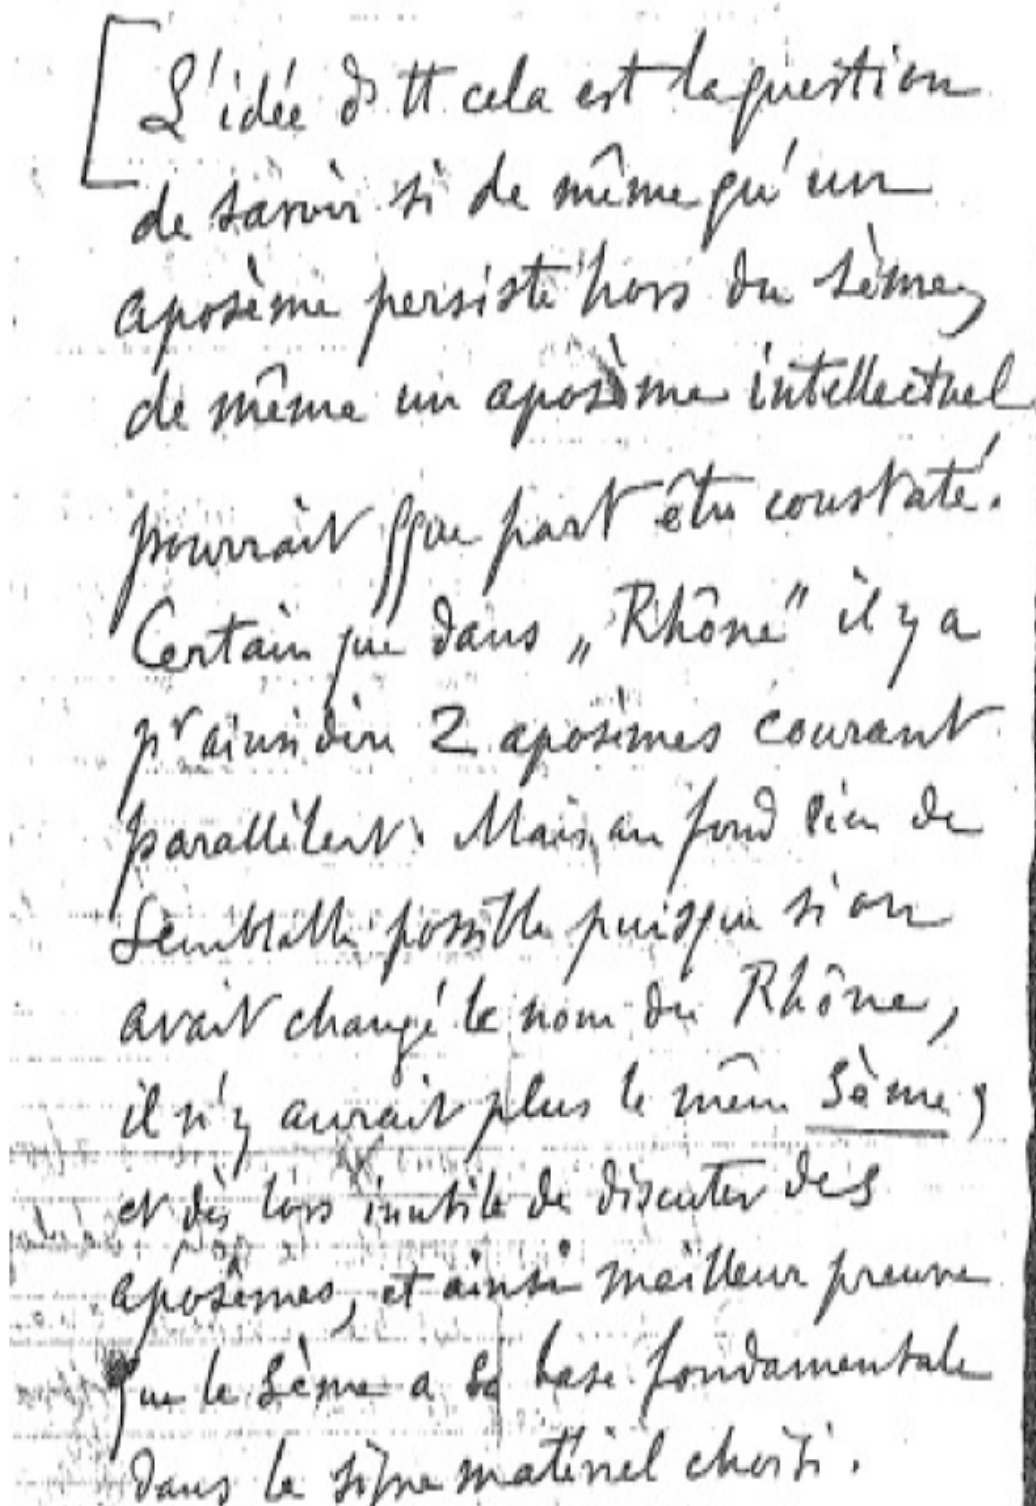 [L'idée ds tt cela est la question
de savoir si de même qu'un
aposème persiste hors du sème,
de même un aposème intellectuel
pourrait qque part être constaté.
Certain que dans „Rhône" il y a
pr ainsi dire 2 aposèmes courant
parallèlent. Mais au fond rien de
semblable possible puisque si on
avait changé le nom du Rhône,
il n'y aurait plus le même sème,
et dès lors inutile de discuter des
aposèmes, et ainsi meilleur preuve
que le sème a sa base fondamentale
dans le signe matériel choisi.